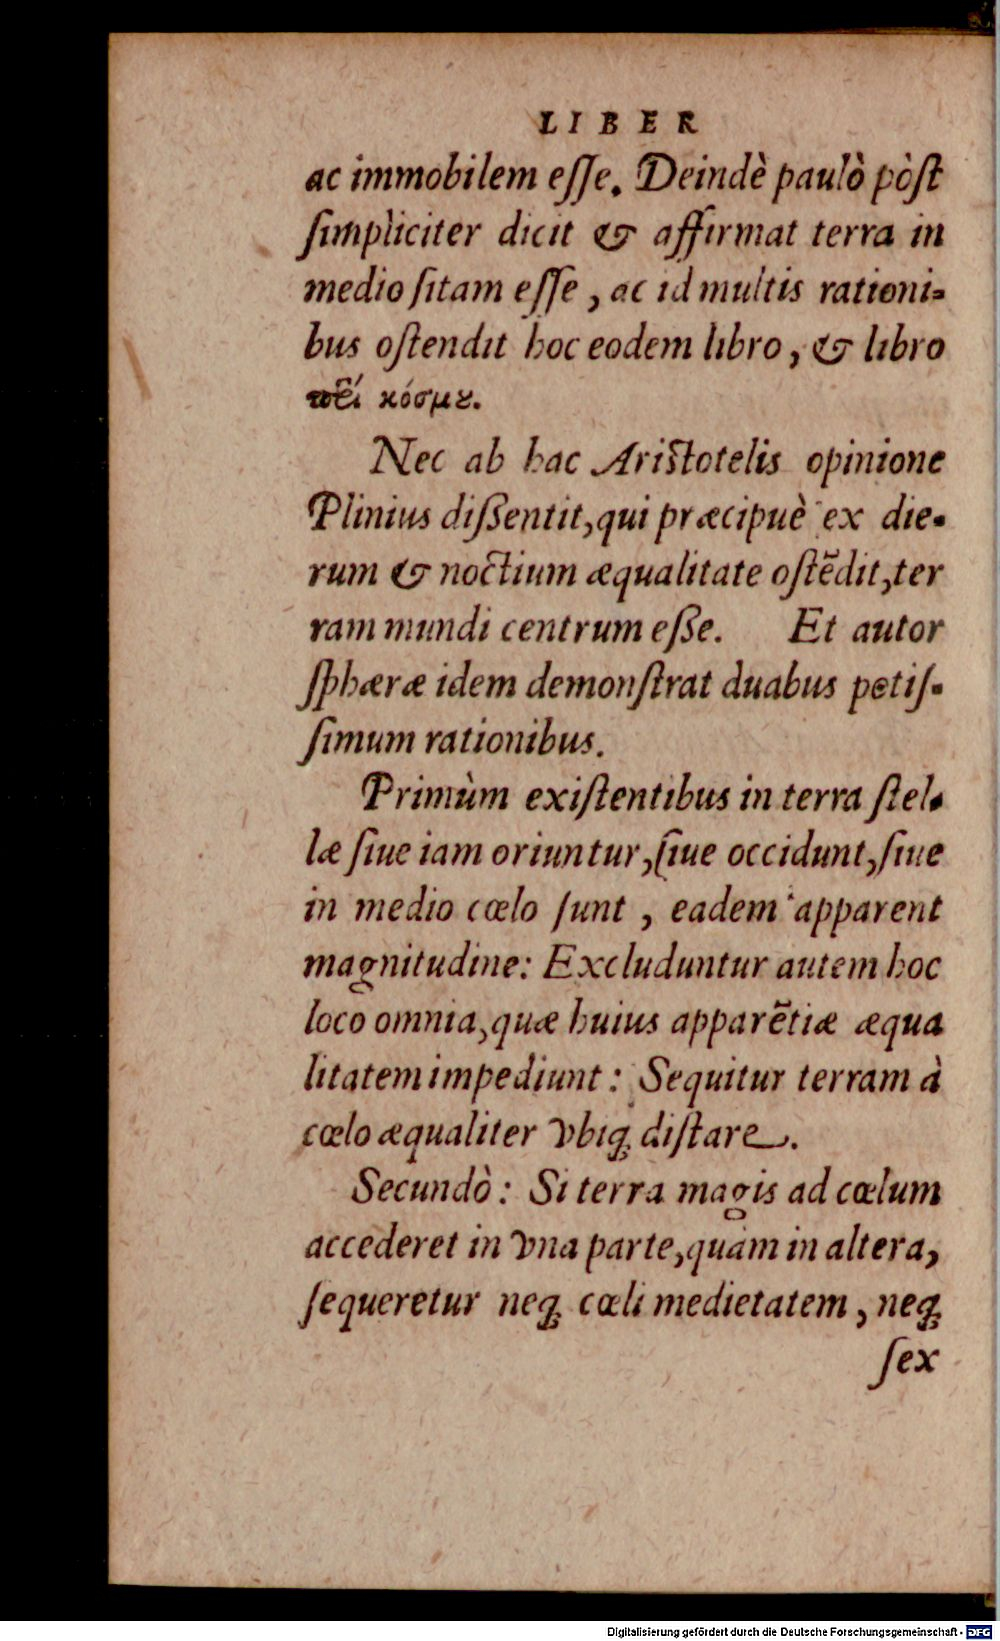 LIBER
ac immobilem eſſe. Deindè paulò pòſt
ſimpliciter dicit & affirmat terra in
medio ſitam eſſe, ac id multis rationi-
bus oſtendit hoc eodem libro, & libro
περί κόσμȣ.
Nec ab hac Ariſtotelis opinione
Plinius dißentit, qui præcipuè ex die-
rum & noctium æqualitate oſtẽdit, ter
ram mundi centrum eße. Et autor
ſphæræ idem demonſtrat duabus potiſ-
ſimum rationibus.
Primùm exiſtentibus in terra ſtel-
læ ſiue iam oriuntur, ſiue occidunt, ſiue
in medio cœlo ſunt, eadem apparent
magnitudine: Excluduntur autem hoc
loco omnia, quæ huius apparẽtiæ æqua
litatem impediunt: Sequitur terram à
cœlo æqualiter vbiq; diſtare.
Secundò: Si terra magis ad cœlum
accederet in vna parte, quàm in altera,
ſequeretur neq; cœli medietatem, neq;
ſex
Digitalisierung gefördert durch die Deutsche Forschungsgemeinschaft - DFG